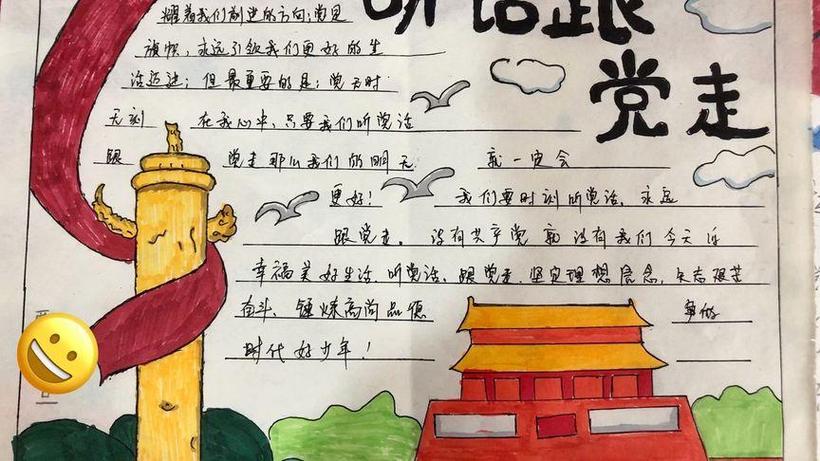 听话跟
党走
耀着我们前进的方向;党是
旗帜,永远引领我们更好的生
活迈进;但最重要的是:党无时
无刻 在我心中,只要我们听党话
跟 党走那么我们的明天 就一定会
更好! 我们要时刻听党话,永远
跟党走。没有共产党就没有我们今天的
幸福美好生活,听党话、跟党走,坚定理想信念,矢志艰苦
奋斗、锤炼高尚品德 争做
时代好少年!